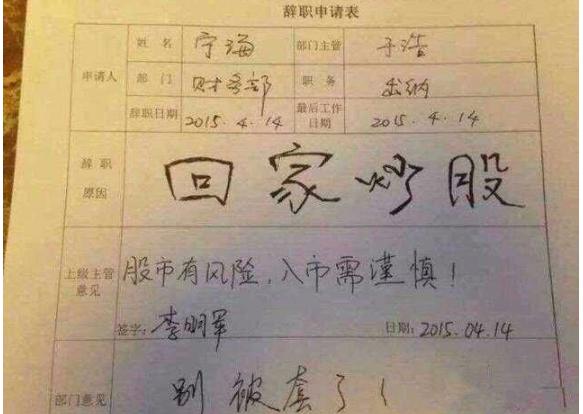 辞职申请表
申请人 姓名 宁海 部门主管 于浩
部门 财务部 职务 出纳
辞职日期 2015.4.14 最后工作日期 2015.4.14
辞职原因 回家炒股
上级主管意见 股市有风险，入市需谨慎！
签字：李明军 日期：2015.04.14
部门意见 别被套了！